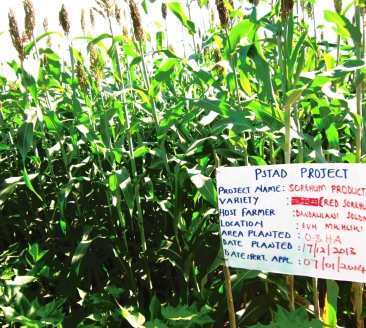 PSTAD PROJECT
PROJECT NAME: SORGHUM PRODUCT
VARIETY : (RED SORGHU
HOST FARMER :
LOCATION :
AREA PLANTED : 0.3 HA
DATE PLANTED : 17/12/2013
DATE FERT. APPL. : 07/01/2014